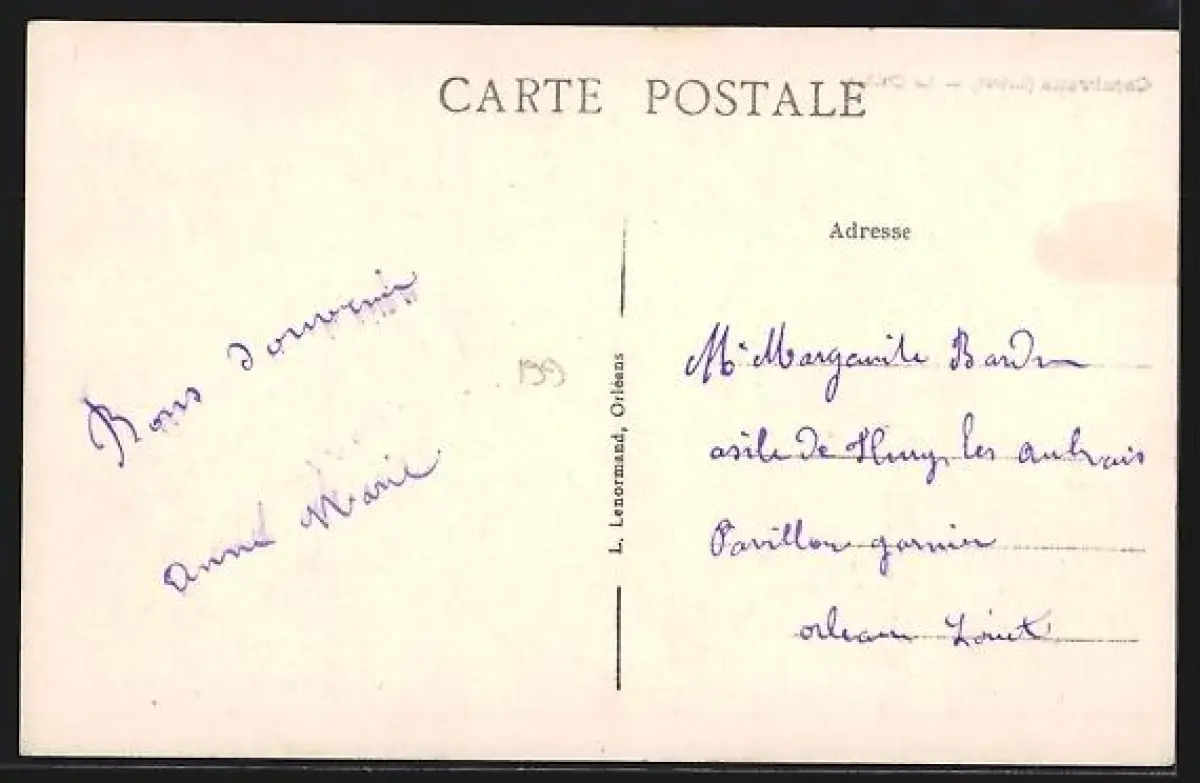 CARTE POSTALE
Adresse
Bons Souvenir
Anne Marie
139
L. Lenormand, Orléans
Marguerite Bardon
asile de Fleury les aubrais
Pavillon garnier
orleans Loiret